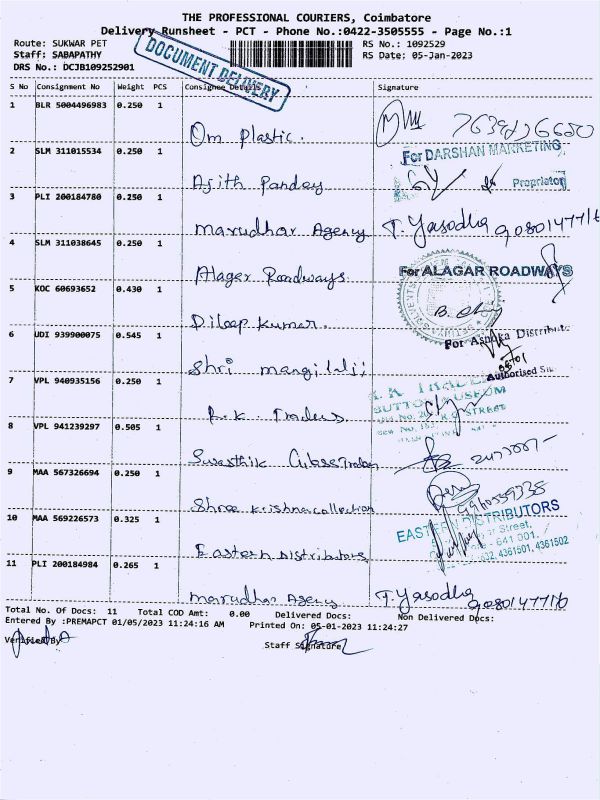 THE PROFESSIONAL COURIERS, Coimbatore
Delivery Runsheet - PCT - Phone No.:0422-3505555 - Page No.:1
Route: SUKWAR PET RS No.: 1092529
Staff: SABAPATHY RS Date: 05-Jan-2023
DRS No.: DCJB109252901
DOCUMENT DELIVERY
S No Consignment No Weight PCS Consignee Details Signature
1 BLR 5004496983 0.250 1
Om plastic.
2 SLM 311015534 0.250 1 For DARSHAN MARKETING
Ajith Pandey Proprietor
3 PLI 200184780 0.250 1
Marudhar Agency T. Yasodha 9080147716
4 SLM 311038645 0.250 1
Alagar Roadways For ALAGAR ROADWAYS
5 KOC 60693652 0.430 1
Dileep Kumar.
6 UDI 939900075 0.545 1 For Ashoka Distribut
Shri mangilalji 05/01
Authorised Sig
7 VPL 940935156 0.250 1
R.K. Traders
8 VPL 941239297 0.505 1
Swasthik
9 MAA 567326694 0.250 1
Shree Krishna collection
10 MAA 569226573 0.325 1 EASTERN DISTRIBUTORS
Eastern Distributors Street,
- 641 001.
4361501, 4361502
11 PLI 200184984 0.265 1
Marudhar Agency T. Yasodha 9080147716
Total No. Of Docs: 11 Total COD Amt: 0.00 Delivered Docs: Non Delivered Docs:
Entered By :PREMAPCT 01/05/2023 11:24:16 AM Printed On: 05-01-2023 11:24:27
Verified By Staff Signature